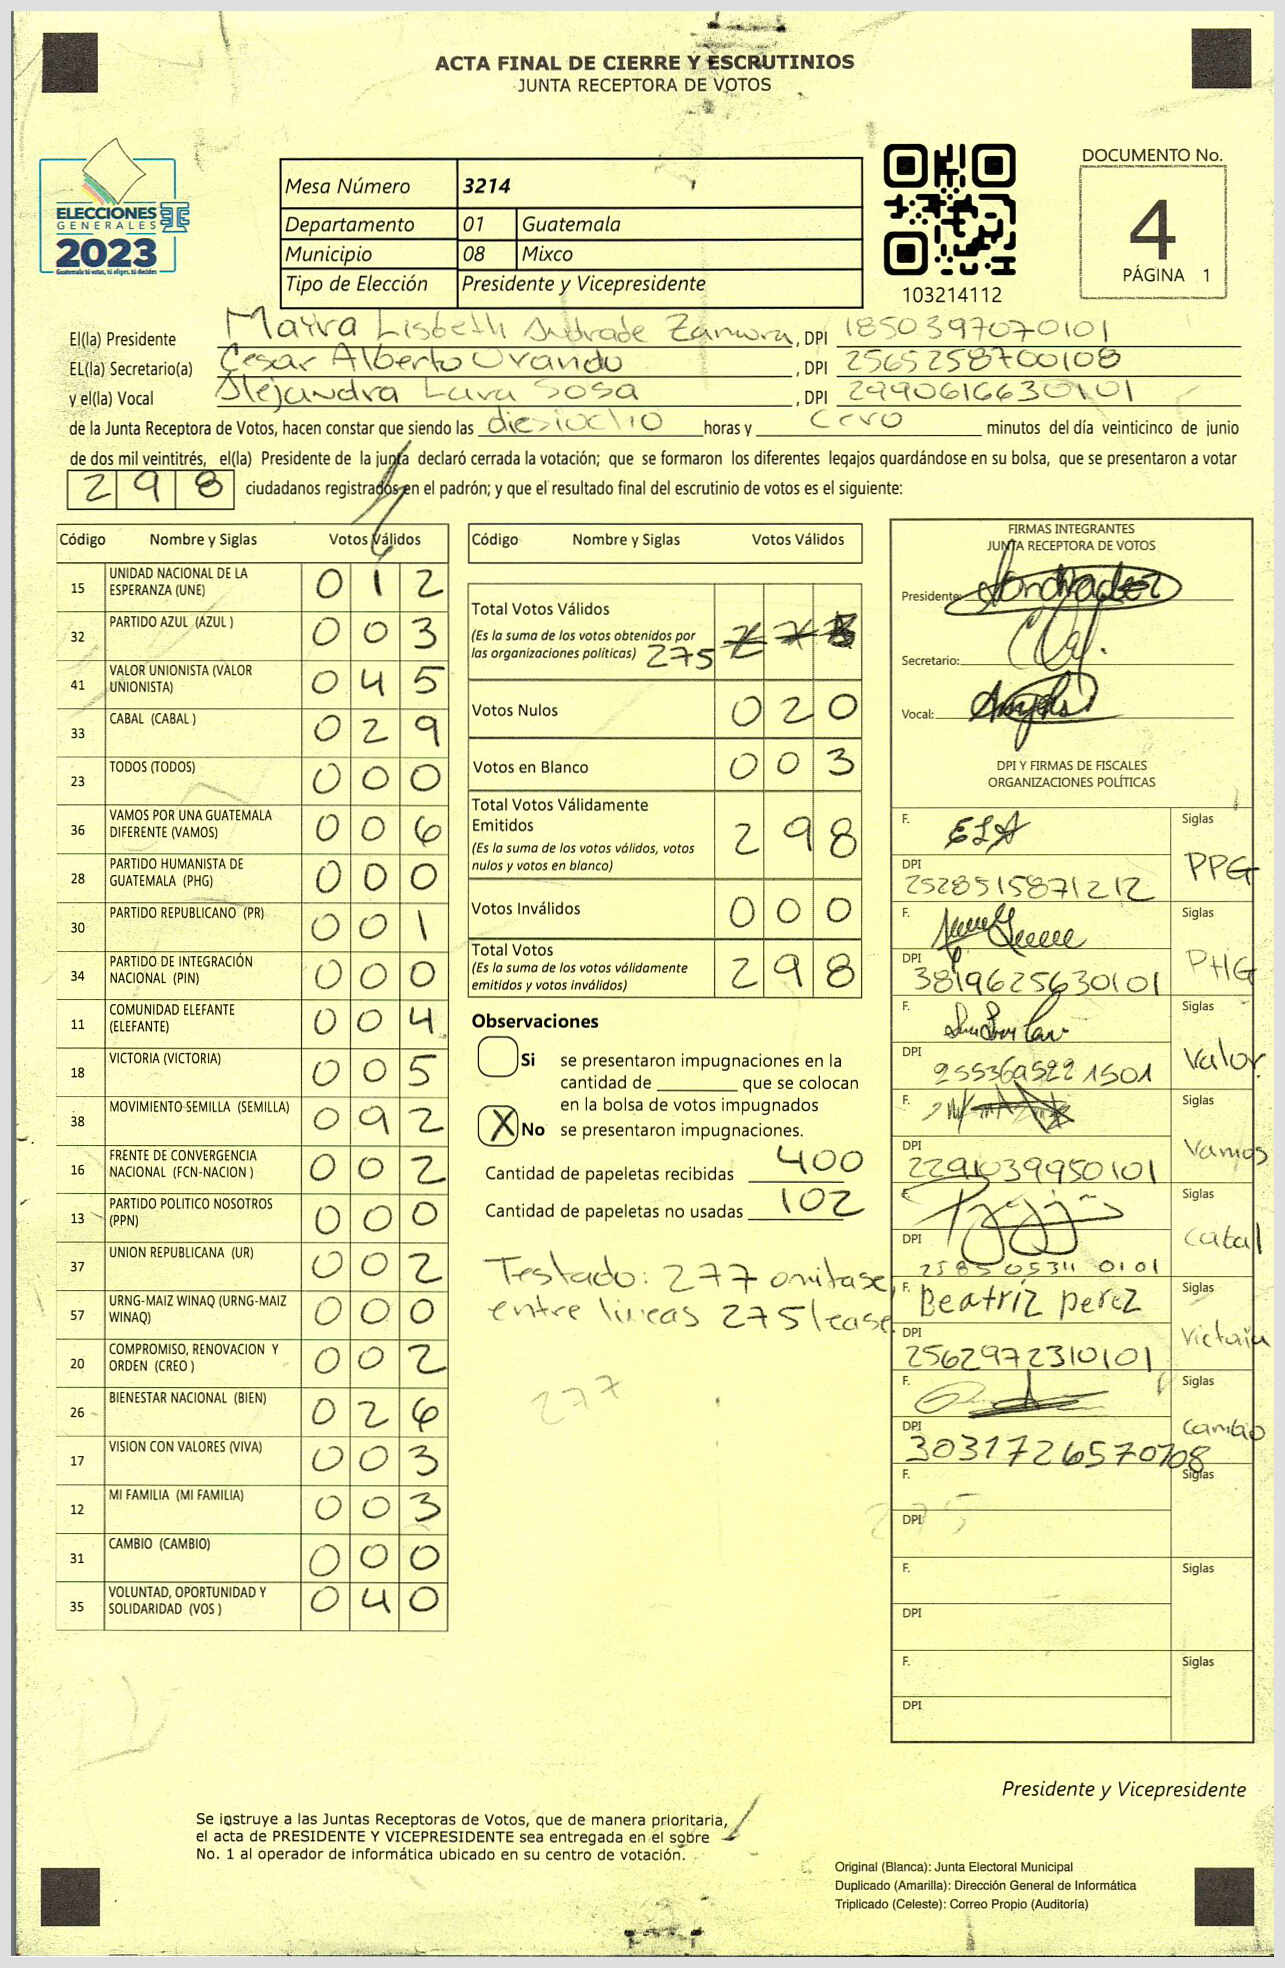 ACTA FINAL DE CIERRE Y ESCRUTINIOS
JUNTA RECEPTORA DE VOTOS
ELECCIONES
GENERALES
2023
Guatemala tú votas, tú eliges, tú decides
Mesa Número 3214
Departamento 01 Guatemala
Municipio 08 Mixco
Tipo de Elección Presidente y Vicepresidente
103214112
DOCUMENTO No.
4
PÁGINA 1
El(la) Presidente Mayra Lisbeth Andrade Zamora, DPI 1850397070101
EL(la) Secretario(a) Cesar Alberto Ovando, DPI 2565258700108
y el(la) Vocal Alejandra Lara Sosa, DPI 2990616630101
de la Junta Receptora de Votos, hacen constar que siendo las diesiocho horas y Cero minutos del día veinticinco de junio
de dos mil veintitrés, el(la) Presidente de la junta declaró cerrada la votación; que se formaron los diferentes legajos guardándose en su bolsa, que se presentaron a votar
298 ciudadanos registrados en el padrón; y que el resultado final del escrutinio de votos es el siguiente:
Código Nombre y Siglas Votos Válidos
15 UNIDAD NACIONAL DE LA ESPERANZA (UNE) 012
32 PARTIDO AZUL (AZUL ) 003
41 VALOR UNIONISTA (VALOR UNIONISTA) 045
33 CABAL (CABAL ) 029
23 TODOS (TODOS) 000
36 VAMOS POR UNA GUATEMALA DIFERENTE (VAMOS) 006
28 PARTIDO HUMANISTA DE GUATEMALA (PHG) 000
30 PARTIDO REPUBLICANO (PR) 001
34 PARTIDO DE INTEGRACIÓN NACIONAL (PIN) 000
11 COMUNIDAD ELEFANTE (ELEFANTE) 004
18 VICTORIA (VICTORIA) 005
38 MOVIMIENTO SEMILLA (SEMILLA) 092
16 FRENTE DE CONVERGENCIA NACIONAL (FCN-NACION ) 002
13 PARTIDO POLITICO NOSOTROS (PPN) 000
37 UNION REPUBLICANA (UR) 002
57 URNG-MAIZ WINAQ (URNG-MAIZ WINAQ) 000
20 COMPROMISO, RENOVACION Y ORDEN (CREO ) 002
26 BIENESTAR NACIONAL (BIEN) 026
17 VISION CON VALORES (VIVA) 003
12 MI FAMILIA (MI FAMILIA) 003
31 CAMBIO (CAMBIO) 000
35 VOLUNTAD, OPORTUNIDAD Y SOLIDARIDAD (VOS ) 040
Código Nombre y Siglas Votos Válidos
Total Votos Válidos
(Es la suma de los votos obtenidos por
las organizaciones politicas) 275
Votos Nulos 020
Votos en Blanco 003
Total Votos Válidamente
Emitidos 298
(Es la suma de los votos válidos, votos
nulos y votos en blanco)
Votos Inválidos 000
Total Votos 298
(Es la suma de los votos válidamente
emitidos y votos inválidos)
Observaciones
Si se presentaron impugnaciones en la
cantidad de ________ que se colocan
en la bolsa de votos impugnados
X No se presentaron impugnaciones.
Cantidad de papeletas recibidas 400
Cantidad de papeletas no usadas 102
Testado: 277 omitase,
entre lineas 275 lease
277
FIRMAS INTEGRANTES
JUNTA RECEPTORA DE VOTOS
Presidente:
Secretario:
Vocal:
DPI Y FIRMAS DE FISCALES
ORGANIZACIONES POLÍTICAS
F. Siglas PPG
DPI 2528515871212
F. Siglas PHG
DPI 3819625630101
F. Siglas Valor
DPI 2553695221501
F. Siglas Vamos
DPI 2291039950101
F. Siglas Cabal
DPI 2585053110101
F. Beatriz perez Siglas Victoria
DPI 2562972310101
F. Siglas Cambio
DPI 3031726570108
F. Siglas
DPI 275
F. Siglas
DPI
F. Siglas
DPI
Presidente y Vicepresidente
Se instruye a las Juntas Receptoras de Votos, que de manera prioritaria,
el acta de PRESIDENTE Y VICEPRESIDENTE sea entregada en el sobre
No. 1 al operador de informática ubicado en su centro de votación.
Original (Blanca): Junta Electoral Municipal
Duplicado (Amarilla): Dirección General de Informática
Triplicado (Celeste): Correo Propio (Auditoría)